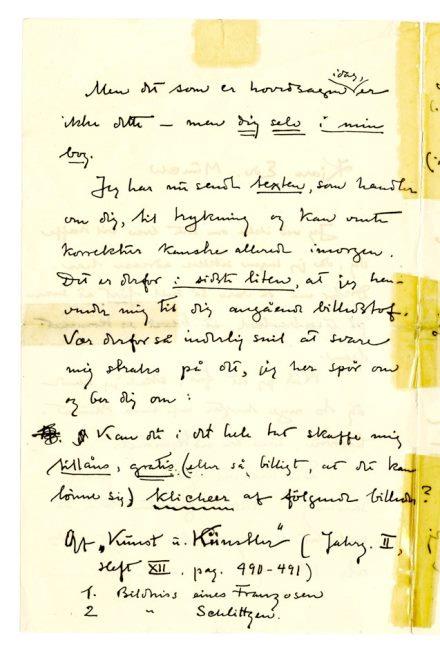 Men det som er hovedsagen idag, er
ikke dette – men dig selv i min
bog.
Jeg har nu sendt texten, som handler
om dig, til trykning og kan vente
korrektur kanske allerede imorgen.
Det er derfor i sidste liten, at jeg hen-
vender mig til dig angående billedstof.
Vær derfor så inderlig snil at svare
mig straks på det, jeg her spør om
og ber dig om:
Kan du i det hele tat skaffe mig
tillåns, gratis (eller så billigt, at det kan
lønne sig) klicheer af følgende billeder?
Af „Kunst u. Künstler" (Jahrg. II,
Heft XII. pag. 490-491)
1. Bildniss eines Franzosen
2 " Schlittgen.